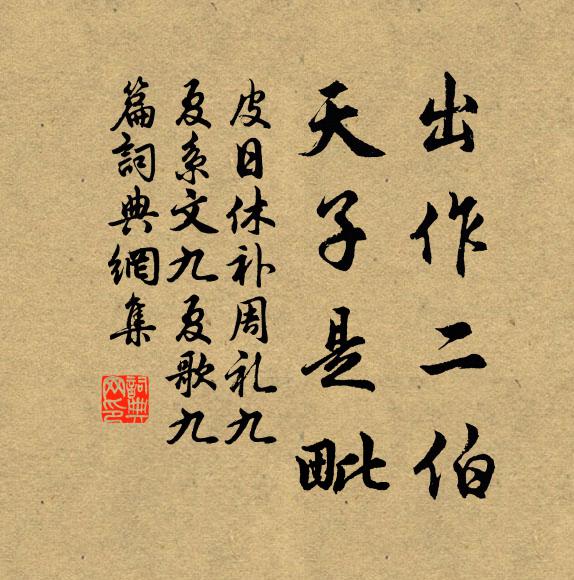 出作二伯
天子是毗
皮日休补周礼九
夏系文九夏歌九
篇詞典網集
詞典网印